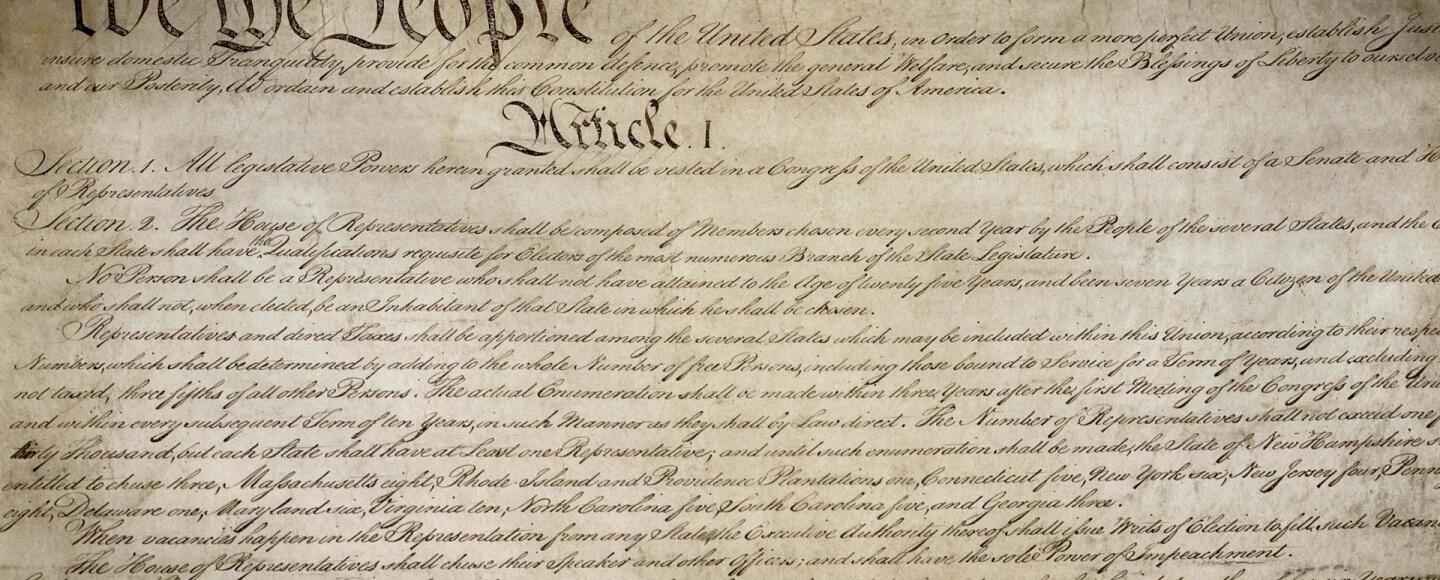 We the People of the United States, in Order to form a more perfect Union, establish Just
insure domestic Tranquility, provide for the common defence, promote the general Welfare, and secure the Blessings of Liberty to ourselve
and our Posterity, do ordain and establish this Constitution for the United States of America.
Article. I.
Section. 1. All legislative Powers herein granted shall be vested in a Congress of the United States, which shall consist of a Senate and H
of Representatives.
Section. 2. The House of Representatives shall be composed of Members chosen every second Year by the People of the several States, and the E
in each State shall have the Qualifications requisite for Electors of the most numerous Branch of the State Legislature.
No Person shall be a Representative who shall not have attained to the Age of twenty five Years, and been seven Years a Citizen of the United
and who shall not, when elected, be an Inhabitant of that State in which he shall be chosen.
Representatives and direct Taxes shall be apportioned among the several States which may be included within this Union, according to their respe
Numbers, which shall be determined by adding to the whole Number of free Persons, including those bound to Service for a Term of Years, and excluding
not taxed, three fifths of all other Persons. The actual Enumeration shall be made within three Years after the first Meeting of the Congress of the Uni
and within every subsequent Term of ten Years, in such Manner as they shall by Law direct. The Number of Representatives shall not exceed one f
thirty Thousand, but each State shall have at Least one Representative; and until such enumeration shall be made, the State of New Hampshire s
entitled to chuse three, Massachusetts eight, Rhode-Island and Providence Plantations one, Connecticut five, New-York six, New Jersey four, Penn
eight, Delaware one, Maryland six, Virginia ten, North Carolina five, South Carolina five, and Georgia three.
When vacancies happen in the Representation from any State, the Executive Authority thereof shall issue Writs of Election to fill such Vacan
The House of Representatives shall chuse their Speaker and other Officers; and shall have the sole Power of Impeachment.